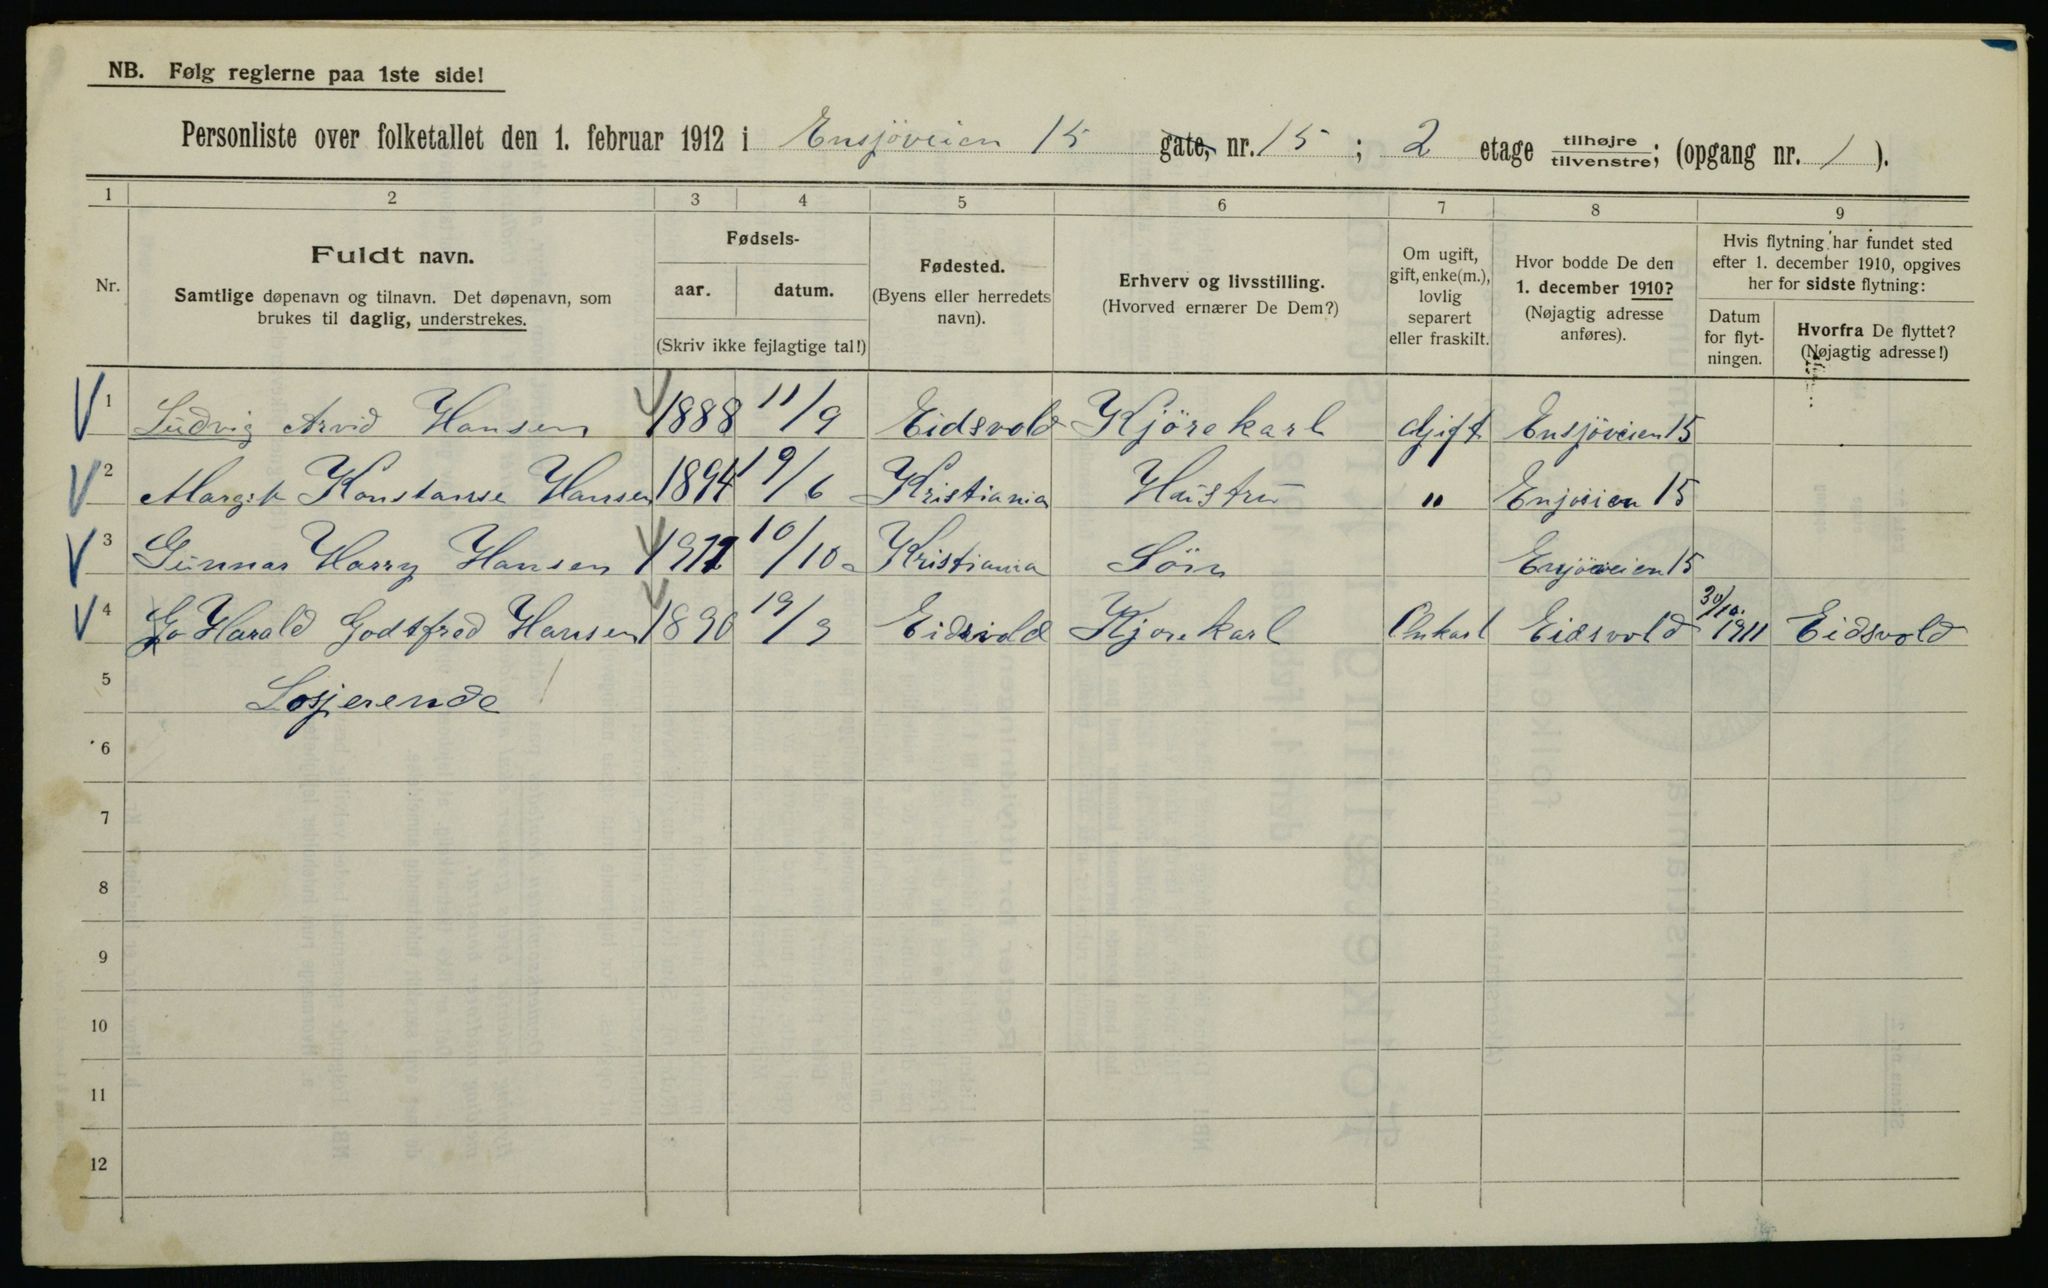 NB. Følg reglerne paa 1ste side!
Personliste over folketallet den 1. februar 1912 i Ensjöveien 15 gate, nr. 15 ; 2 etage tilhøjre tilvenstre; (opgang nr. 1 ).
1 2 3 4 5 6 7 8 9
Nr.
Fuldt navn.
Samtlige døpenavn og tilnavn. Det døpenavn, som
brukes til daglig, understrekes.
Fødsels-
aar. datum.
(Skriv ikke fejlagtige tal!)
Fødested.
(Byens eller herredets
navn).
Erhverv og livsstilling.
(Hvorved ernærer De Dem?)
Om ugift,
gift, enke(m.),
lovlig
separert
eller fraskilt.
Hvor bodde De den
1. december 1910?
(Nøjagtig adresse
anføres).
Hvis flytning har fundet sted
efter 1. december 1910, opgives
her for sidste flytning:
Datum
for flyt-
ningen.
Hvorfra De flyttet?
(Nøjagtig adresse!)
1 Ludvig Arvid Hansen 1888 11/9 Eidsvold Kjörekarl Gift Ensjöveien 15
2 Margit Konstanse Hansen 1894 19/6 Kristiania Hustru " Enjöeien 15
3 Gunnar Harry Hansen 1911 10/10 Kristiania Sön Ensjöveien 15
4 Harald Godtfred Hansen 1890 19/9 Eidsvold Kjorekarl Unkarl Eidsvold 30/10. 1911 Eidsvold
5 Losjerende
6
7
8
9
10
11
12